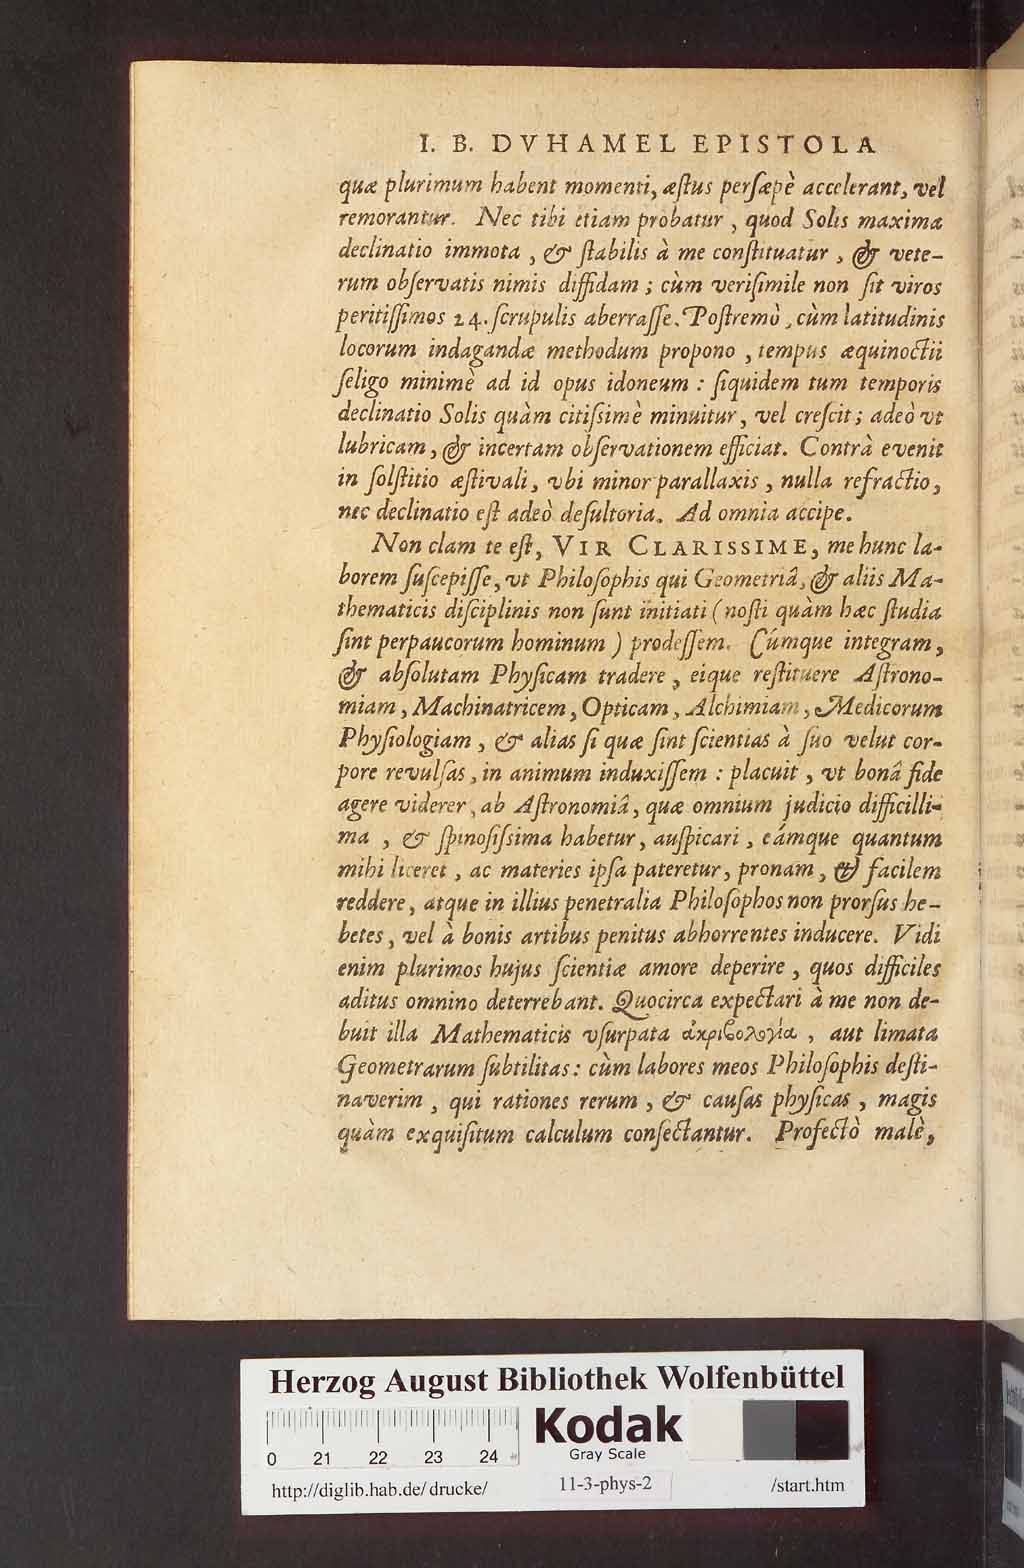 I. B. DVHAMEL EPISTOLA
quæ plurimum habent momenti, æſtus perſæpè accelerant, vel
remorantur. Nec tibi etiam probatur, quod Solis maxima
declinatio immota, & ſtabilis à me conſtituatur, & vete-
rum obſervatis nimis diffidam; cùm veriſimile non ſit viros
peritiſſimos 24. ſcrupulis aberraſſe. Poſtremò, cùm latitudinis
locorum indagandæ methodum propono, tempus æquinoctii
ſeligo minimè ad id opus idoneum: ſiquidem tum temporis
declinatio Solis quàm citiſsimè minuitur, vel creſcit; adeò vt
lubricam, & incertam obſervationem efficiat. Contrà evenit
in ſolſtitio æſtivali, vbi minor parallaxis, nulla refractio,
nec declinatio eſt adeò deſultoria. Ad omnia accipe.
Non clam te eſt, VIR CLARISSIME, me hunc la-
borem ſuſcepiſſe, vt Philoſophis qui Geometriâ, & aliis Ma-
thematicis diſciplinis non ſunt initiati (noſti quàm hæc ſtudia
ſint perpaucorum hominum) prodeſſem. Cúmque integram,
& abſolutam Phyſicam tradere, eique reſtituere Aſtrono-
miam, Machinatricem, Opticam, Alchimiam, Medicorum
Phyſiologiam, & alias ſi quæ ſint ſcientias à ſuo velut cor-
pore revulſas, in animum induxiſſem: placuit, vt bonâ fide
agere viderer, ab Aſtronomiâ, quæ omnium judicio difficilli-
ma, & ſpinoſiſsima habetur, auſpicari, eámque quantum
mihi liceret, ac materies ipſa pateretur, pronam, & facilem
reddere, atque in illius penetralia Philoſophos non prorſus he-
betes, vel à bonis artibus penitus abhorrentes inducere. Vidi
enim plurimos hujus ſcientiæ amore deperire, quos difficiles
aditus omnino deterrebant. Quocirca expectari à me non de-
buit illa Mathematicis vſurpata ἀκριϐολογία, aut limata
Geometrarum ſubtilitas: cùm labores meos Philoſophis deſti-
naverim, qui rationes rerum, & cauſas phyſicas, magis
quàm exquiſitum calculum conſectantur. Profectò malè,
Herzog August Bibliothek Wolfenbüttel
Kodak
Gray Scale
0 21 22 23 24
http://diglib.hab.de/drucke/ 11-3-phys-2 /start.htm